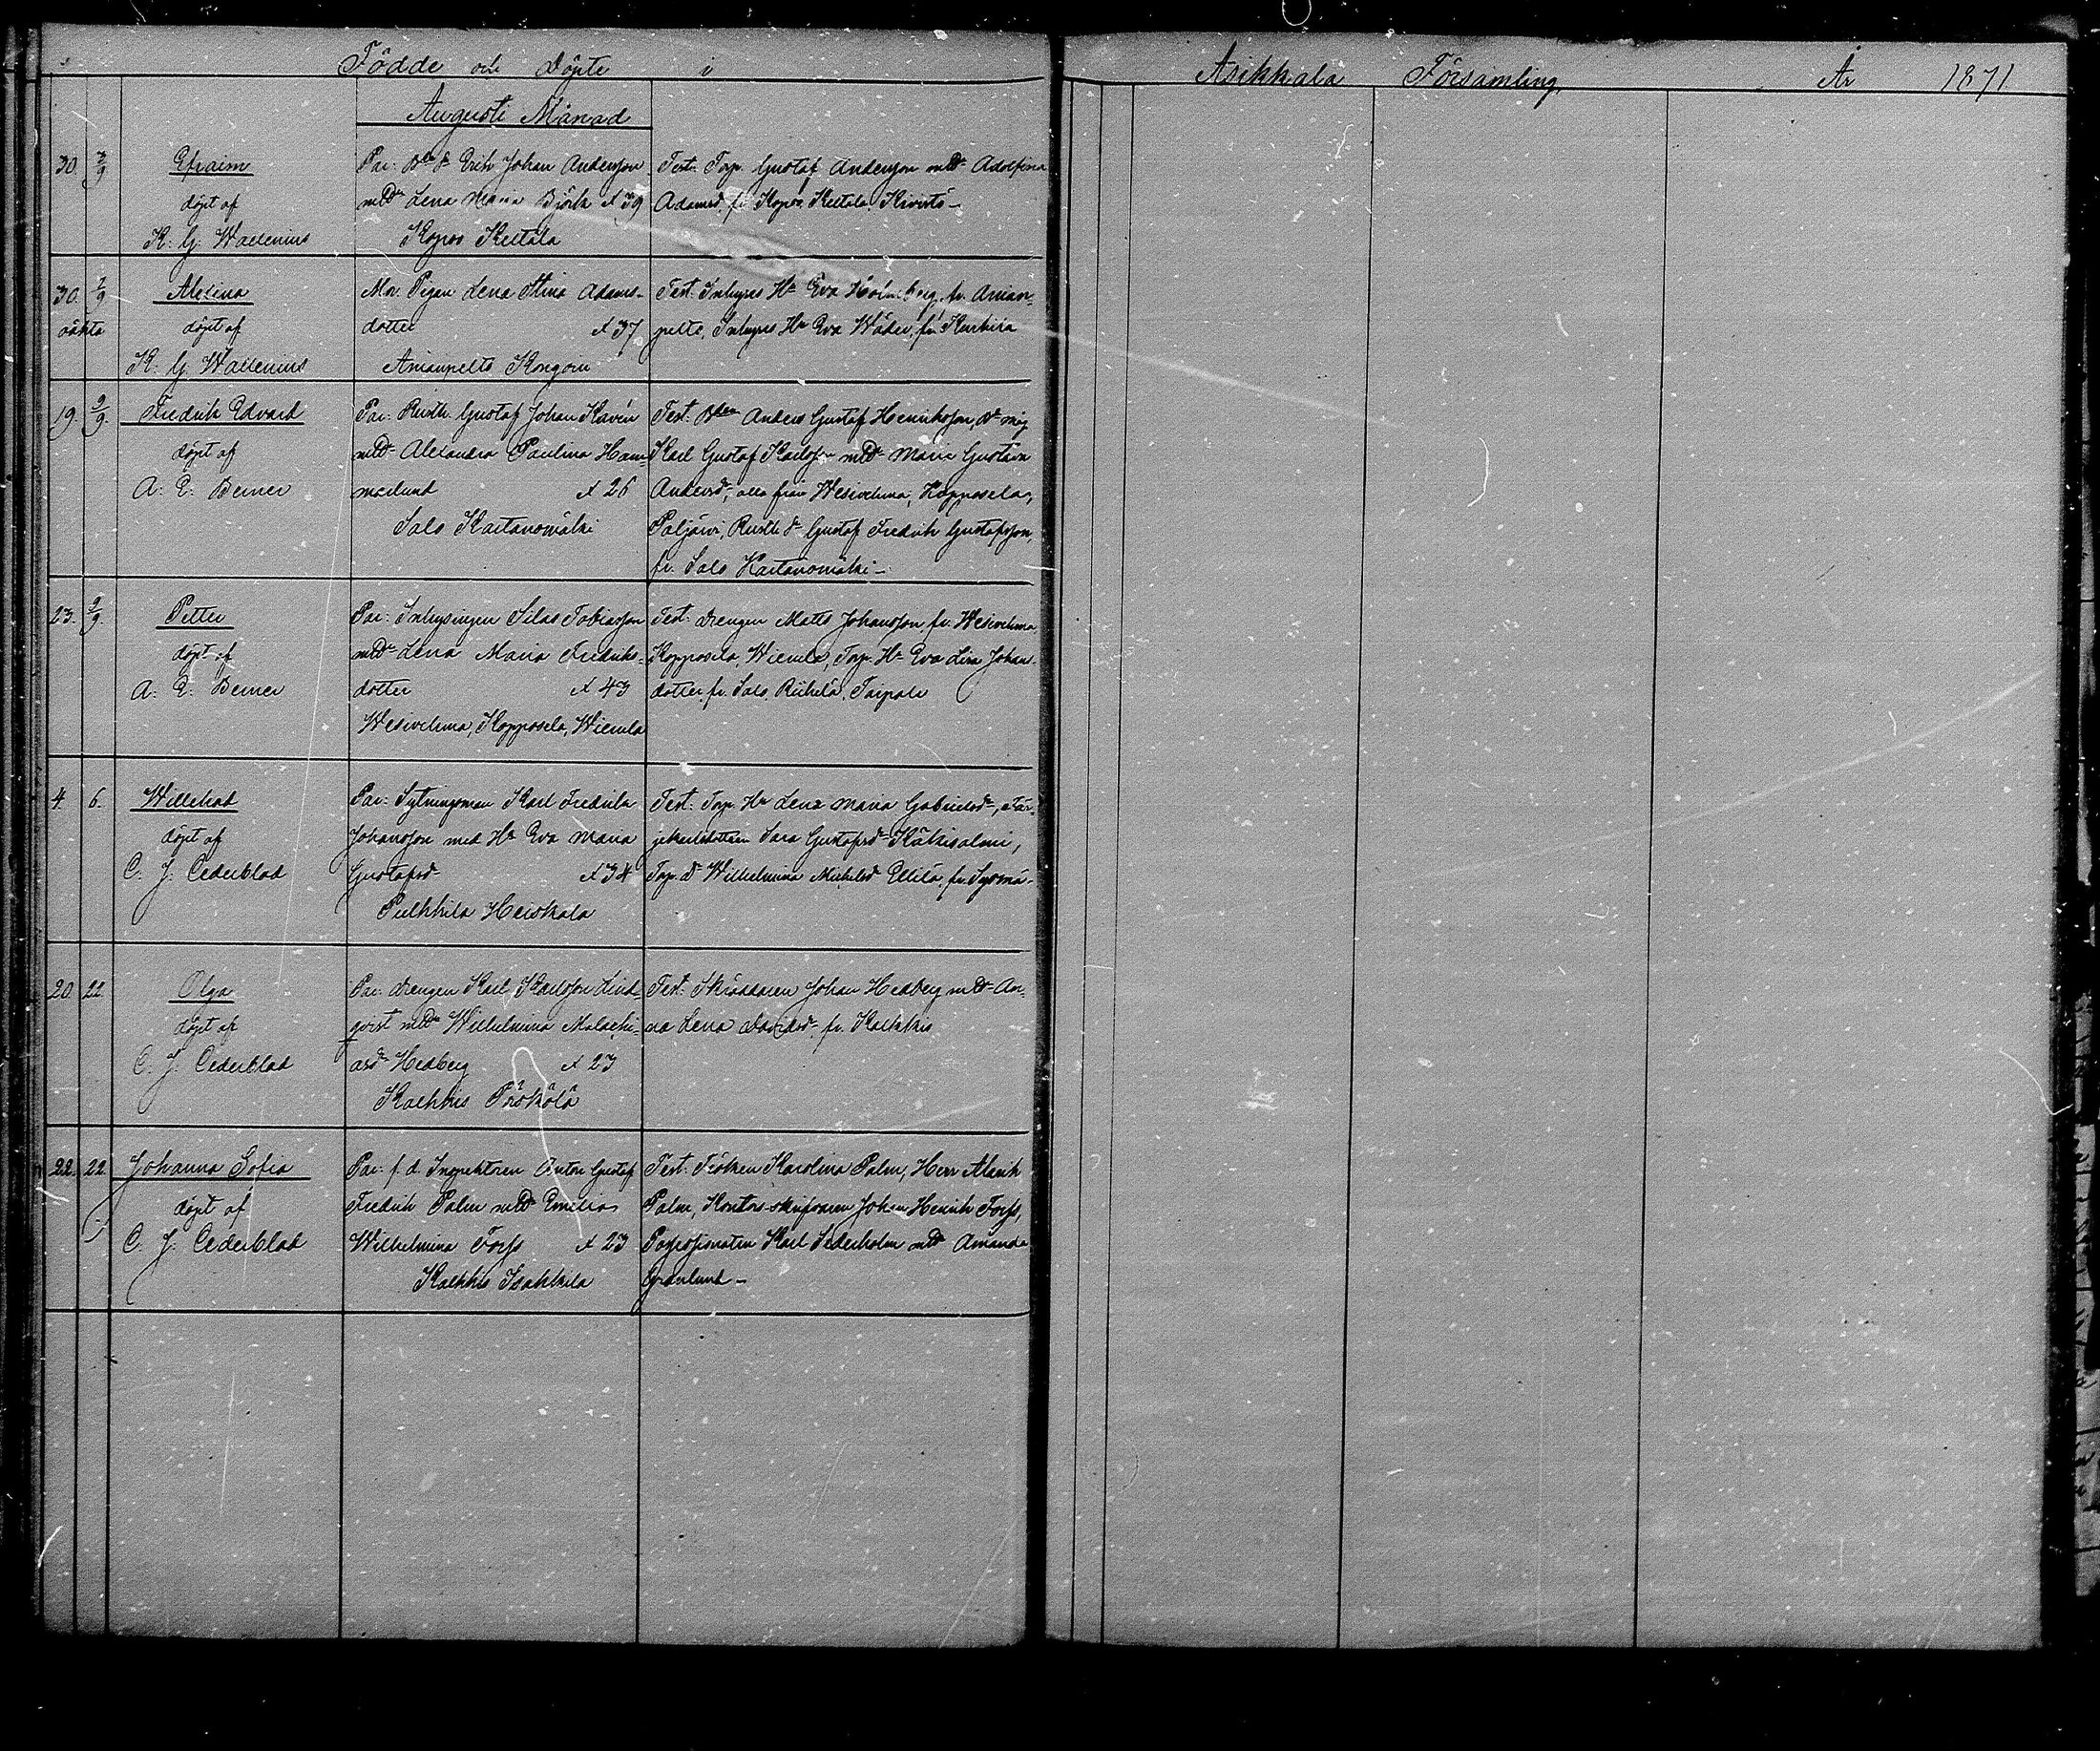 Födde och Döpte i Asikkala Församling, År 1871
Augusti Månad
30. 3/9 Efraim
döpt af
K: G: Wallenius
Par: Erik Johan Andersson
Lena Maria Björk Æ 39
Kopos Keltala
Test. Torp. Gustaf Andersson Adolfina
Adamsd. fr. Kopos Keltala, Kivistö –
30. 7/9 Alexina
oäkta döpt af
K: G: Wallenius
Mor. Pigan Lena Stina Adams-
dotter Æ 37
Anianpelto Kongoin
Test. Inhyses Hu Eva Holmberg, fr. Anian-
pelto, Inhyses Hu Eva fr. Kurhila
19. 9/9. Fredrik Edvard
döpt af
A: E: Berner
Par: Rusth. Gustaf Johan Kavén
Alexandra Paulina Ham-
marlund Æ 26
Salo Kartanomäki
Test. Anders Gustaf Henriksson,
Karl Gustaf Karlsson Maria Gustava
Andersd, alla från Wesivehma, Kopposela,
Paljärvi, Rusth. Gustaf Fredrik Gustafsson,
fr. Salo Kartanomäki –
23. 9/9. Petter
döpt af
A: E: Berner
Par: Inhysingen Silas Tobiasson
Lena Maria Fredriks-
dotter Æ 43
Wesivehma, Kopposela, Wiemla
Test: drengen Matts Johansson, fr. Wesivehma
Kopposela, Wiemla, Torp. Hu Eva Lisa Johans-
dotter fr. Salo, Riihelä, Taipale
4. 6. Willehad
döpt af
C. J. Cederblad
Par: Sytningsman Karl Fredrik
Johansson med Hu Eva Maria
Gustafsd Æ 34
Pulkkila Heiskala
Test: Torp. Hu Lena Maria Gabrielsd,
Sara Gustafsd Käkisalmi,
Torp. d Wilhelmina Michelsd fr. Sysmä –
20. 22. Olga
döpt af
C. J. Cederblad
Par: drengen Karl Karlsson Lind-
qvist Wilhelmina Malaki-
asd Hedberg Æ 23
Kalkkis Pöskölä
Test: Skräddaren Johan Hedberg An-
na Lena Davidsd fr. Kalkkis
22. 22. Johanna Sofia
döpt af
C. J. Cederblad
Par: f. d. Inspektoren Anton Gustaf
Fredrik Palm Emilia
Wilhelmina Forss Æ 23
Kalkkis Isahkila
Test: Fröken Karolina Palm, Herr Alarik
Palm, Kontors-skrifvaren Johan Henrik Forss,
Possessionaten Karl Sederholm Amanda
Grönlund –